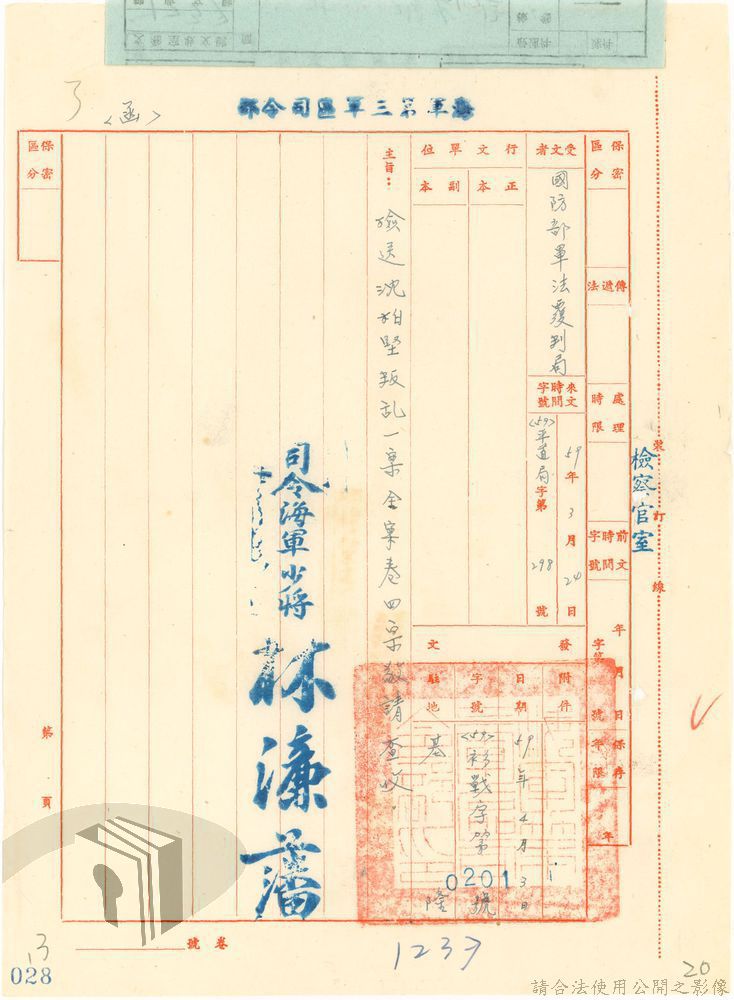 海軍第三軍區司令部
<函>
保密區分
傳遞法
處理時限
前文時間字號
年 月 日
字第 號
保存年限
年
檢察官室
裝 訂 線
受文者
國防部軍法覆判局
來文時間字號
59年3月24日
<59>平道局字第298號
行文單位
正本
副本
發文
附件
日期
59年4月3日
字號
<59>衫戰字第0201號
駐地
基隆
主旨：
檢送沈柏堅叛乱一案全案卷四宗敬請查收。
司令海軍少將
林濂藩
保密區分
第 頁
卷號
13
028
1237
20
請合法使用公開之影像